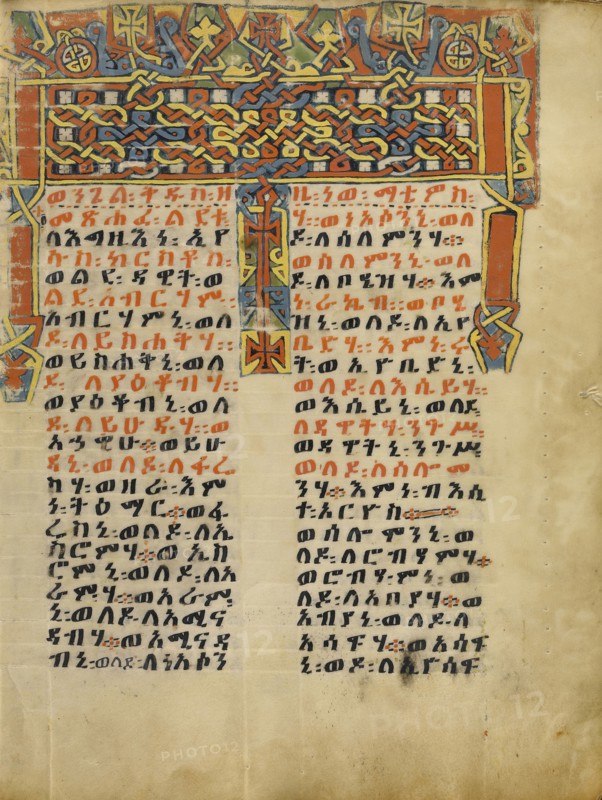 ወንጌል፡ቅዱስ፡ዘ
ዜ፡ነወ፡ማቴዎስ፡
መጽሐፈ፡ልደቱ
ለእግዚእነ፡ኢየ
ሱስ፡ክርስቶስ፡
ወልደ፡ዳዊት፡ወ
ልደ፡አብርሃም፡፡
አብርሃምኒ፡ወለ
ዶ፡ለይስሐቅሃ፡፡
ወይስሐቅኒ፡ወለ
ዶ፡ለያዕቆብሃ፡፡
ወያዕቆብኒ፡ወለ
ዶ፡ለይሁዳሃ፡ወ
አኃዊሁ፡፡ወይሁ
ዳኒ፡ወለዶ፡ለፋሬ
ስሃ፡ወዘራ፡እም
ነ፡ትዕማር፡፡ወፋ
ሬስኒ፡ወለዶ፡ለኤ
ስሮምሃ፡፡ወኤስ
ሮምኒ፡ወለዶ፡ለአ
ራምሃ፡፡ወአራም
ኒ፡ወለዶ፡ለአሚና
ዳብሃ፡፡ወአሚናዳ
ብኒ፡ወለዶ፡ለነአሶን
ሃ፡፡ወነአሶንኒ፡ወለ
ዶ፡ለሰለምንሃ፡፡
ወሰለምንኒ፡ወለ
ዶ፡ለቦዔዝሃ፡፡እም
ነ፡ራኬብ፡፡ወቦዔ
ዝኒ፡ወለዶ፡ለኢዮ
ቤድሃ፡፡እምነ፡ሩ
ት፡ወኢዮቤድኒ፡
ወለዶ፡ለእሴይሃ፡፡
ወእሴይኒ፡ወለዶ
ለዳዊትሃ፡ንጉሥ፡፡
ወዳዊትኒ፡ንጉሥ፡
ወለዶ፡ለሰሎሞ
ንሃ፡፡እምነ፡ብእሲ
ተ፡ኦርዮስ፡፡
ወሰሎሞንኒ፡ወ
ለዶ፡ለሮብዓምሃ፡፡
ወሮብዓምኒ፡ወ
ለዶ፡ለአቢያሃ፡፡ወ
አብያኒ፡ወለዶ፡ለ
አሳፍሃ፡፡ወአሳፍ
ኒ፡ወዶ፡ለኢዮሳፍ
PHOTO12